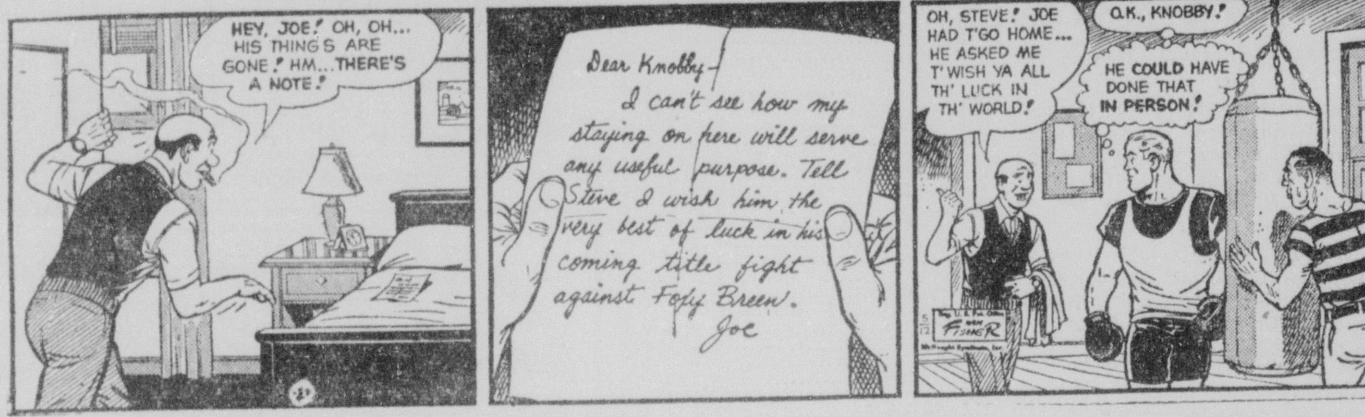 HEY, JOE! OH, OH...
HIS THING'S ARE
GONE! HM...THERE'S
A NOTE!
Dear Knobby-
I can't see how my
staying on here will serve
any useful purpose. Tell
Steve I wish him the
very best of luck in his
coming title fight
against Foxy Breen.
Joe
OH, STEVE! JOE
HAD T'GO HOME...
HE ASKED ME
T'WISH YA ALL
TH' LUCK IN
TH' WORLD!
O.K., KNOBBY!
HE COULD HAVE
DONE THAT
IN PERSON!
5
12
Reg. U. S. Pat. Office
HAM
FISHER
McNaught Syndicate, Inc.